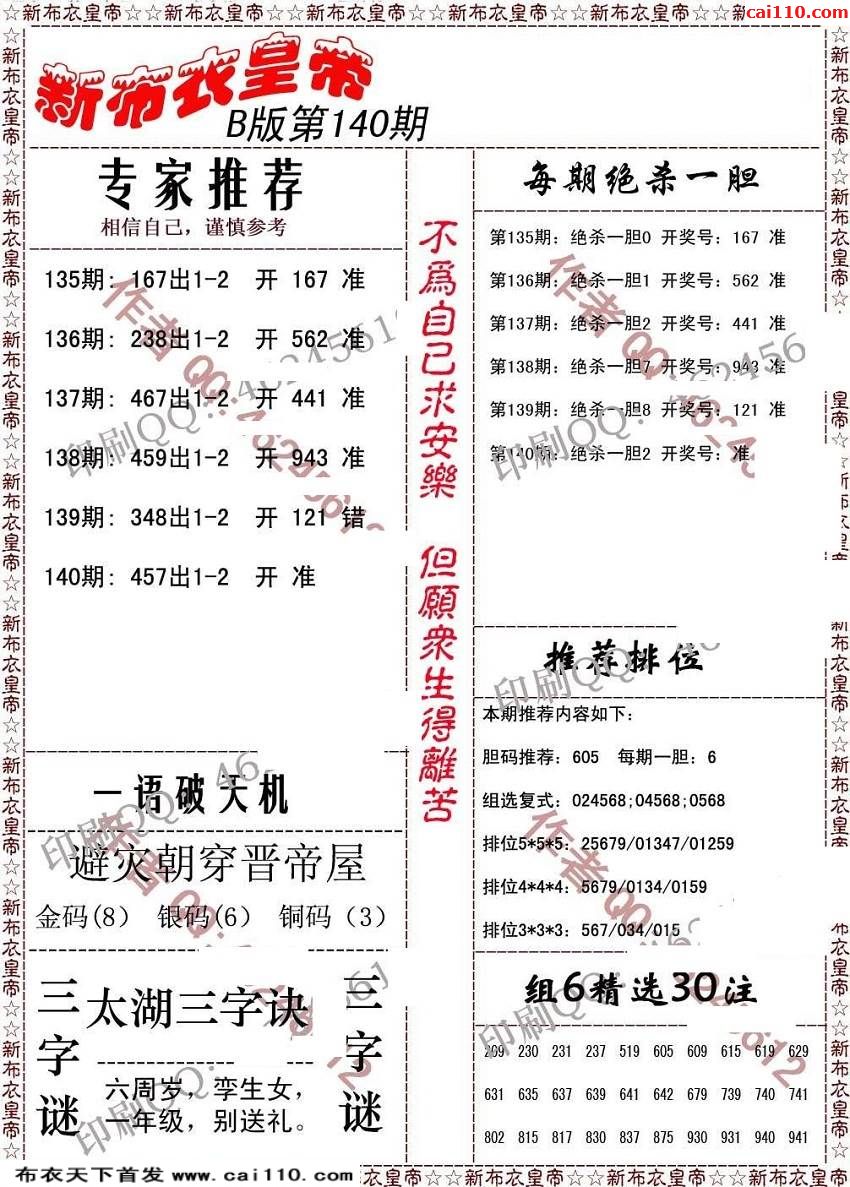 ☆☆新布衣皇帝☆☆新布衣皇帝☆☆新布衣皇帝☆☆新布衣皇帝☆☆新布衣皇帝☆☆
cai110.com
新布衣皇帝
B版第140期
专家推荐
相信自己，谨慎参考
135期: 167出1-2 开 167 准
136期: 238出1-2 开 562 准
137期: 467出1-2 开 441 准
138期: 459出1-2 开 943 准
139期: 348出1-2 开 121 错
140期: 457出1-2 开 准
一语破天机
避灾朝穿晋帝屋
金码(8) 银码(6) 铜码（3）
三字谜
太湖三字诀
六周岁，孪生女，
一年级，别送礼。
三字谜
不為自己求安樂
但願衆生得離苦
每期绝杀一胆
第135期: 绝杀一胆0 开奖号: 167 准
第136期: 绝杀一胆1 开奖号: 562 准
第137期: 绝杀一胆2 开奖号: 441 准
第138期: 绝杀一胆7 开奖号: 943 准
第139期: 绝杀一胆8 开奖号: 121 准
第140期: 绝杀一胆2 开奖号: 准
推荐排位
本期推荐内容如下:
胆码推荐: 605 每期一胆: 6
组选复式: 024568;04568;0568
排位5*5*5: 25679/01347/01259
排位4*4*4: 5679/0134/0159
排位3*3*3: 567/034/015
组6精选30注
209 230 231 237 519 605 609 615 619 629
631 635 637 639 641 642 679 739 740 741
802 815 817 830 837 875 930 931 940 941
布衣天下首发 www.cai110.com
衣皇帝☆☆新布衣皇帝☆☆新布衣皇帝☆☆新布衣皇帝☆☆